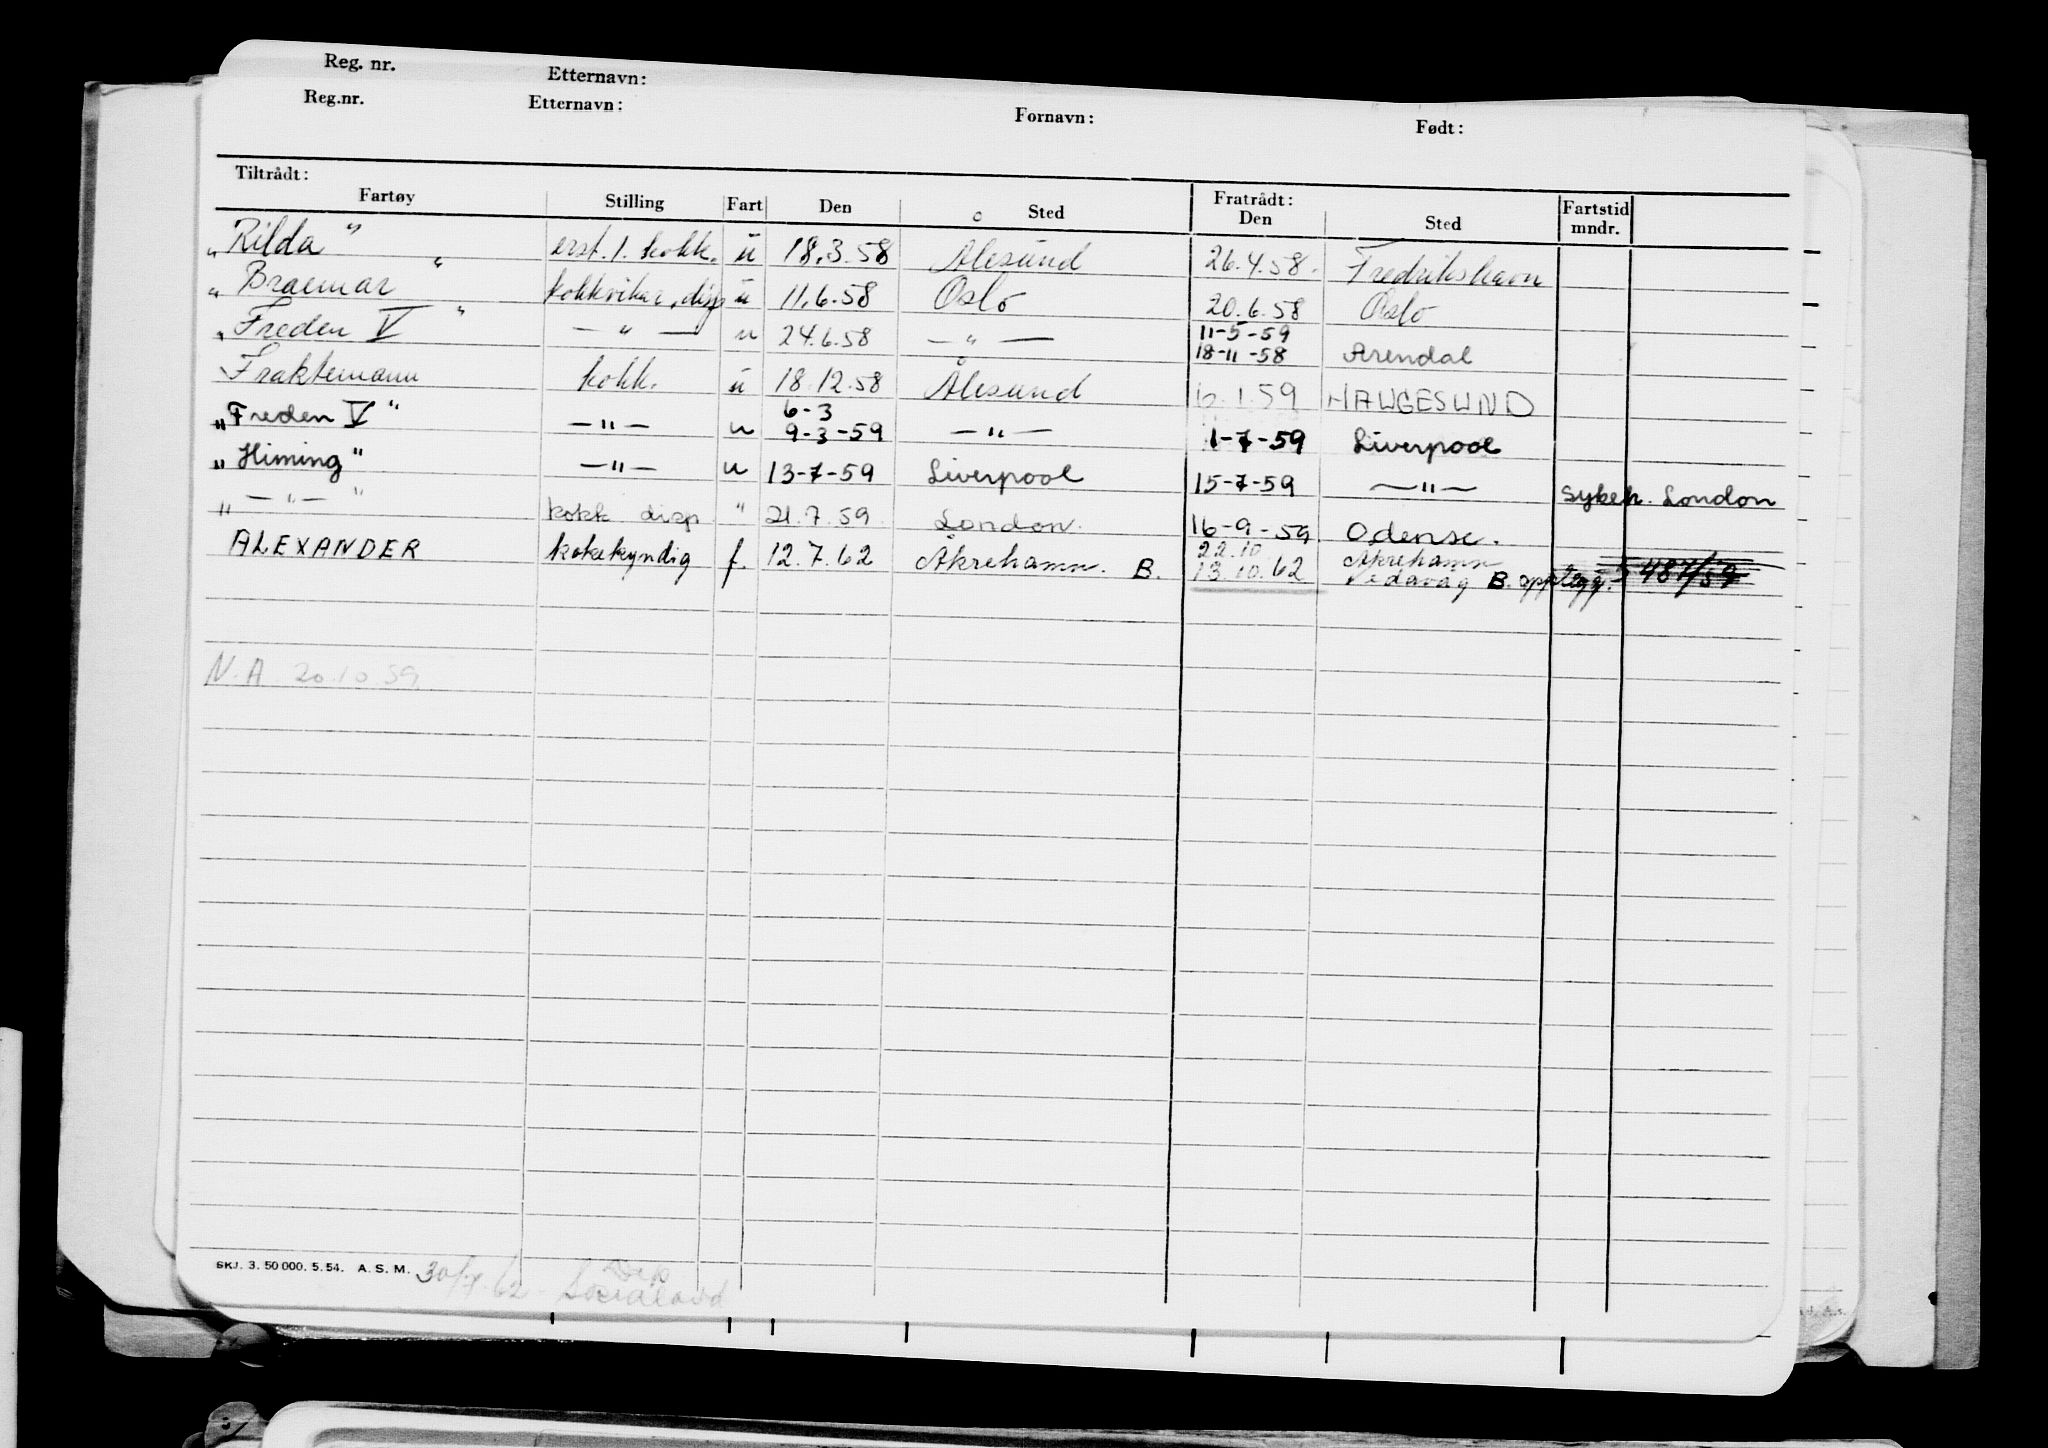 Reg. nr. Etternavn:
Reg.nr. Etternavn: Fornavn: Født:
Tiltrådt: Fratrådt:
Fartøy Stilling Fart Den Sted Den Sted Fartstid mndr.
„Rilda" erst. 1. kokk. u 18.3.58 Ålesund 26.4.58. Fredrikshavn
„Braemar" kokkvikar, disp u 11.6.58 Oslo 20.6.58 Oslo
11-5-59
„Freden V" — " — u 24.6.58 — " — 18-11-58 Arendal
Fraktemann kokk. u 18.12.58 Ålesund 6.1.59 HAUGESUND
6-3
„Freden V" — " — u 9-3-59 — " — 1-7-59 Liverpool
„Himing" — " — u 13-7-59 Liverpool 15-7-59 — " — sykeh. London
„ — " — " kokk disp " 21.7.59 London. 16-9-59 Odense.
22.10 Åkrehamn
ALEXANDER kokekyndig f. 12.7.62 Åkrehamn. B. 13.10.62 Vedavåg B. opplegg. 487/59
N.A. 20.10.59
SKJ. 3. 50 000. 5. 54. A. S. M.